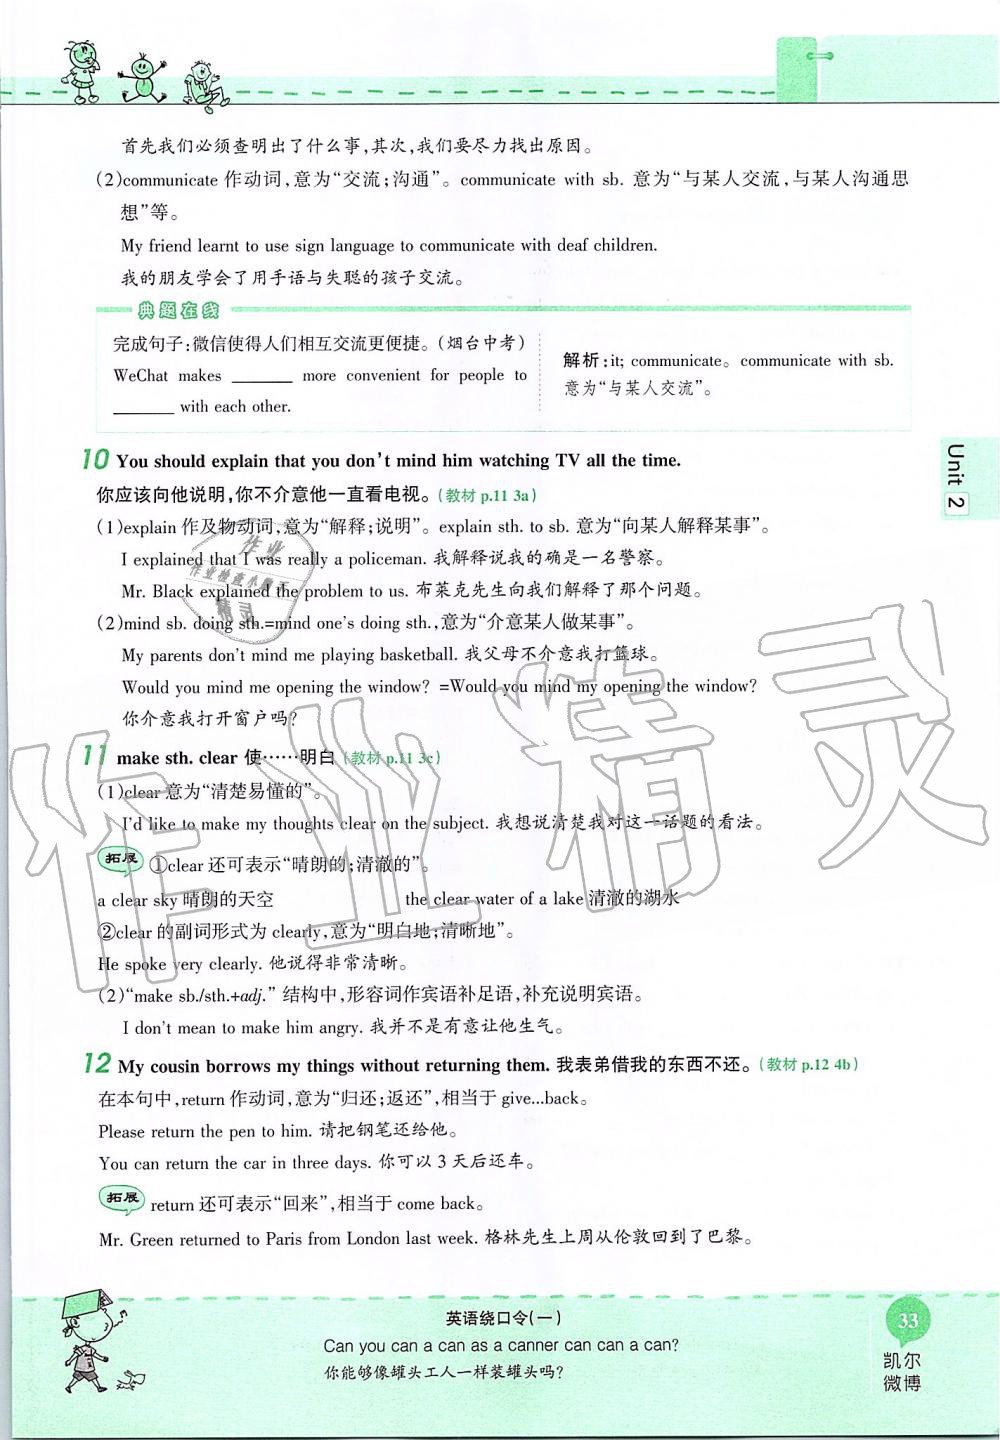 首先我们必须查明出了什么事,其次,我们要尽力找出原因。
(2)communicate 作动词,意为“交流;沟通”。communicate with sb. 意为“与某人交流,与某人沟通思
想”等。
My friend learnt to use sign language to communicate with deaf children.
我的朋友学会了用手语与失聪的孩子交流。
典题在线
完成句子:微信使得人们相互交流更便捷。(烟台中考)
WeChat makes ______ more convenient for people to
______ with each other.
解析:it; communicate。communicate with sb.
意为“与某人交流”。
10 You should explain that you don't mind him watching TV all the time.
你应该向他说明,你不介意他一直看电视。(教材 p.11 3a)
(1)explain 作及物动词,意为“解释;说明”。explain sth. to sb. 意为“向某人解释某事”。
I explained that I was really a policeman. 我解释说我的确是一名警察。
Mr. Black explained the problem to us. 布莱克先生向我们解释了那个问题。
(2)mind sb. doing sth.=mind one's doing sth.,意为“介意某人做某事”。
My parents don't mind me playing basketball. 我父母不介意我打篮球。
Would you mind me opening the window? =Would you mind my opening the window?
你介意我打开窗户吗?
11 make sth. clear 使……明白(教材 p.11 3c)
(1)clear 意为“清楚易懂的”。
I'd like to make my thoughts clear on the subject. 我想说清楚我对这一话题的看法。
拓展 ①clear 还可表示“晴朗的;清澈的”。
a clear sky 晴朗的天空 the clear water of a lake 清澈的湖水
②clear 的副词形式为 clearly,意为“明白地;清晰地”。
He spoke very clearly. 他说得非常清晰。
(2)“make sb./sth.+adj.” 结构中,形容词作宾语补足语,补充说明宾语。
I don't mean to make him angry. 我并不是有意让他生气。
12 My cousin borrows my things without returning them. 我表弟借我的东西不还。(教材 p.12 4b)
在本句中,return 作动词,意为“归还;返还”,相当于 give...back。
Please return the pen to him. 请把钢笔还给他。
You can return the car in three days. 你可以 3 天后还车。
拓展 return 还可表示“回来”,相当于 come back。
Mr. Green returned to Paris from London last week. 格林先生上周从伦敦回到了巴黎。
Unit 2
英语绕口令(一)
Can you can a can as a canner can can a can?
你能够像罐头工人一样装罐头吗?
33
凯尔
微博
作业精灵
作业
作业检查小精灵
精灵